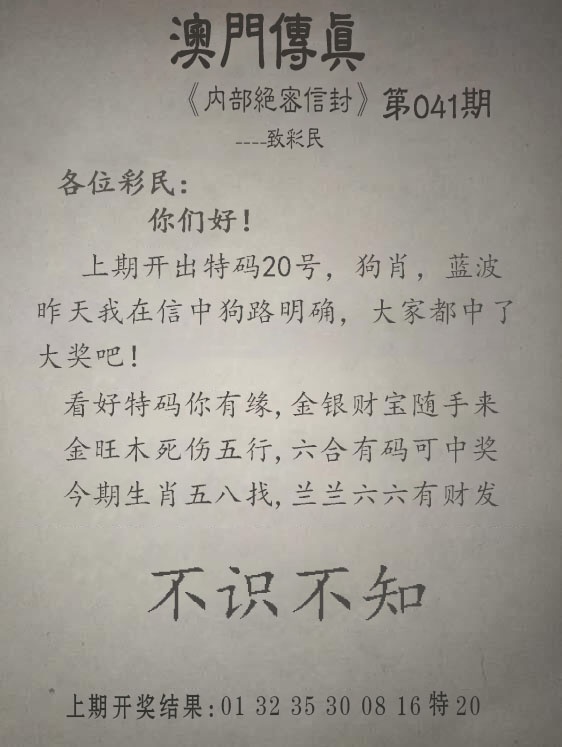 澳門傳眞
《内部絕密信封》第041期
----致彩民
各位彩民：
你们好！
上期开出特码20号，狗肖，蓝波
昨天我在信中狗路明确，大家都中了
大奖吧！
看好特码你有缘,金银财宝随手来
金旺木死伤五行,六合有码可中奖
今期生肖五八找,兰兰六六有财发
不识不知
上期开奖结果:01 32 35 30 08 16特20